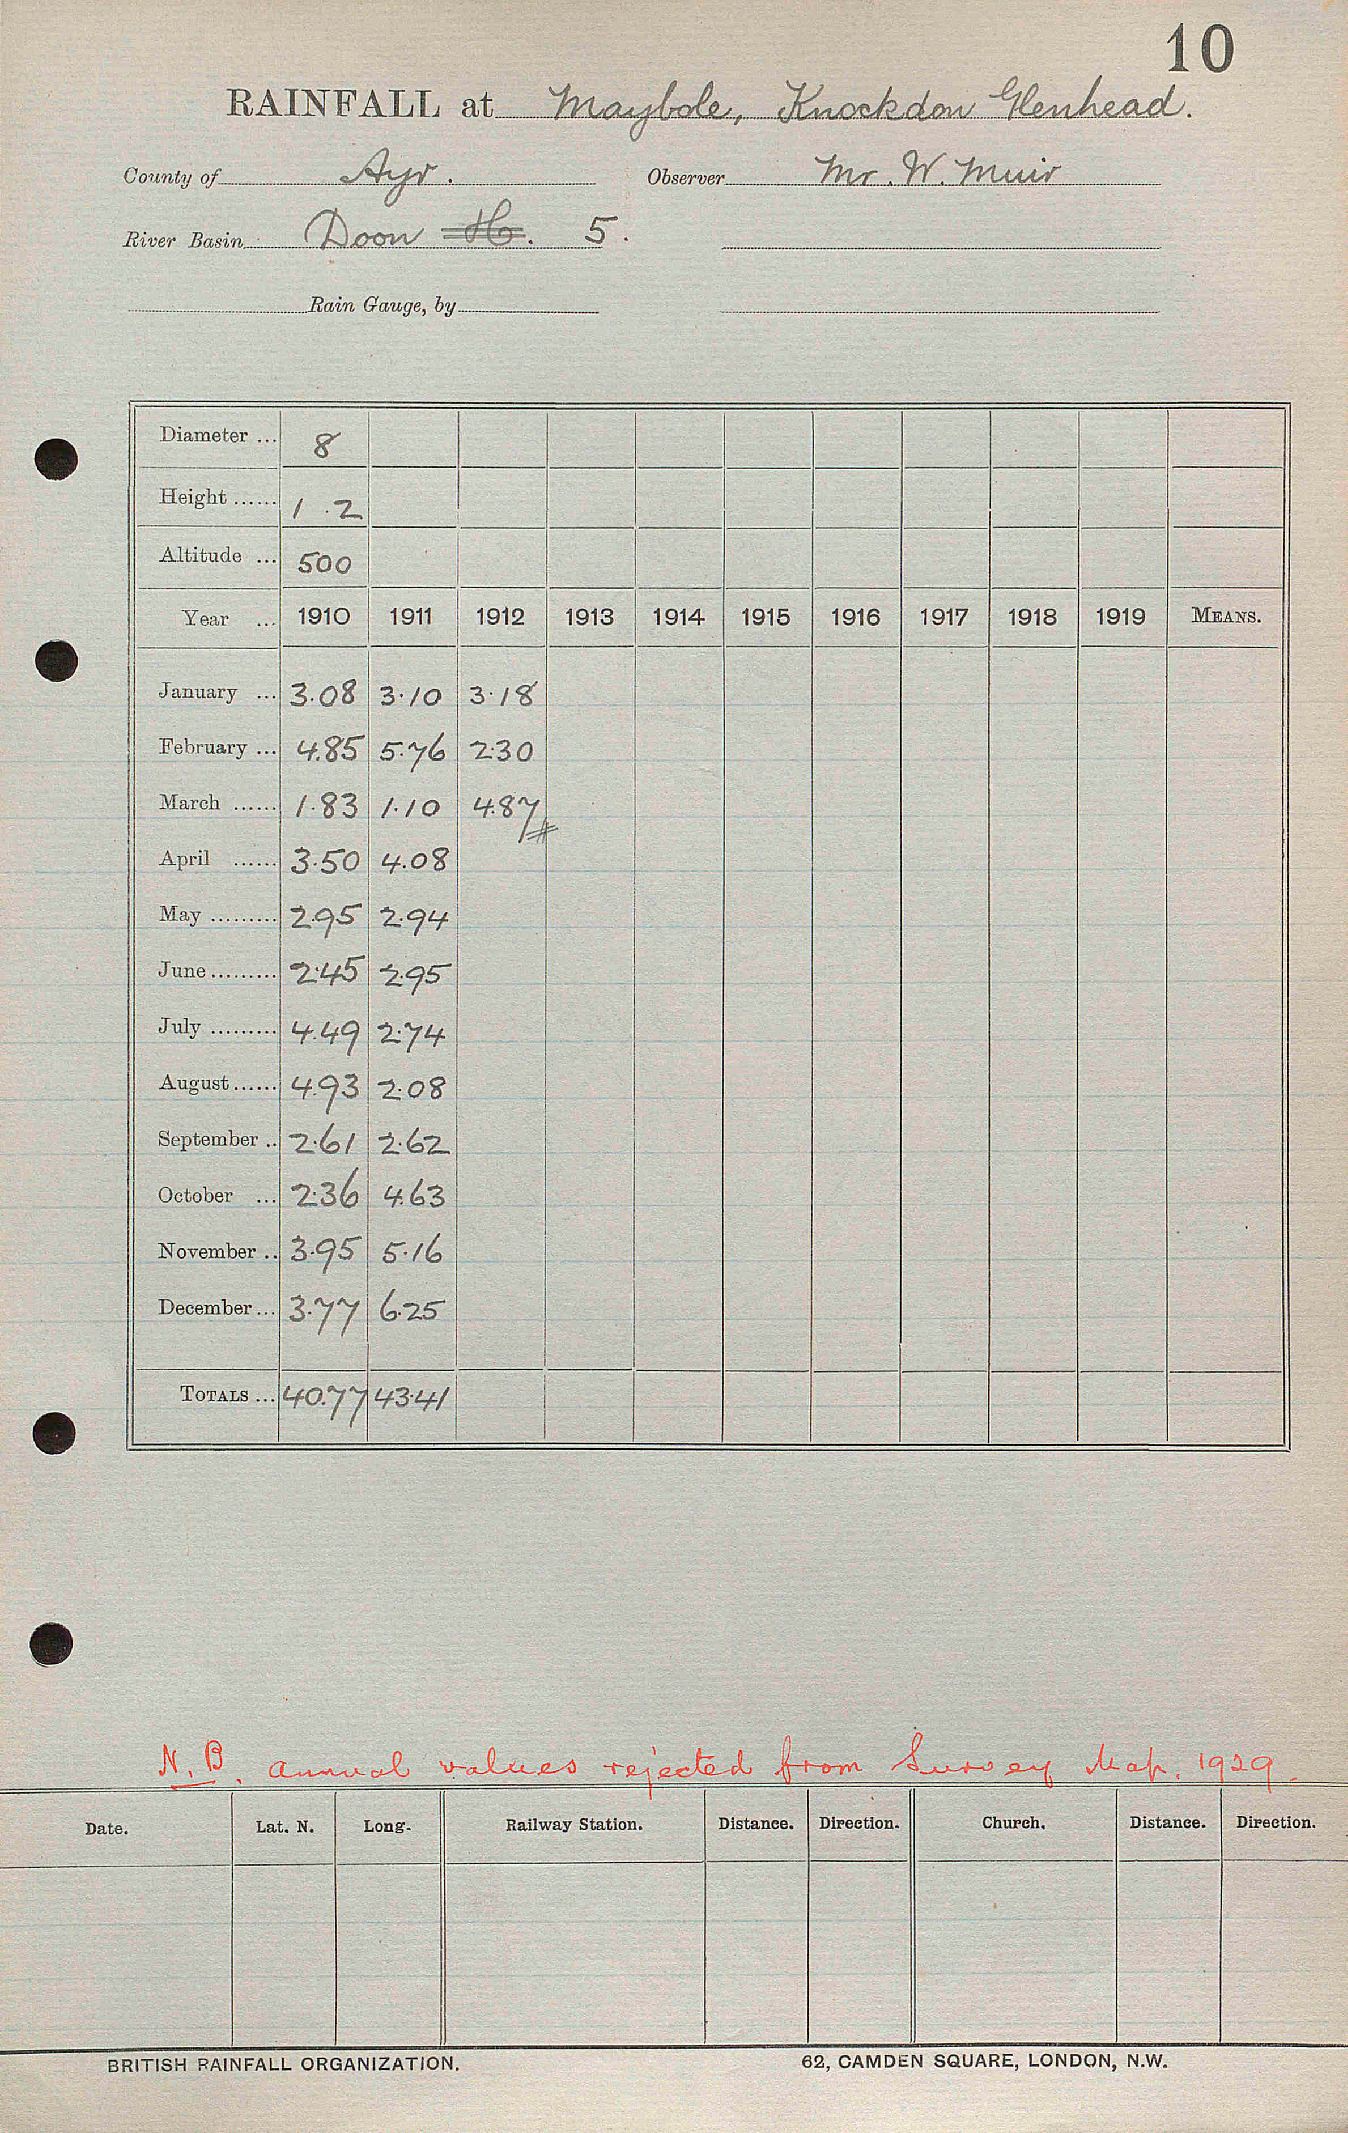 10
RAINFALL at Maybole, Knockdon Glenhead.
County of Ayr. Observer Mr. W. Muir
River Basin Doon H. 5.
Rain Gauge, by
Diameter ... 8
Height ...... 1 .2
Altitude ... 500
Year ... 1910 1911 1912 1913 1914 1915 1916 1917 1918 1919 MEANS.
January ... 3.08 3.10 3.18
February ... 4.85 5.76 2.30
March ...... 1.83 1.10 4.87
April ...... 3.50 4.08
May ......... 2.95 2.94
June ......... 2.45 2.95
July ......... 4.49 2.74
August ...... 4.93 2.08
September .. 2.61 2.62
October ... 2.36 4.63
November .. 3.95 5.16
December ... 3.77 6.25
TOTALS ... 40.77 43.41
N.B. Annual values rejected from Survey Map. 1929.
Date. Lat. N. Long. Railway Station. Distance. Direction. Church. Distance. Direction.
BRITISH RAINFALL ORGANIZATION. 62, CAMDEN SQUARE, LONDON, N.W.